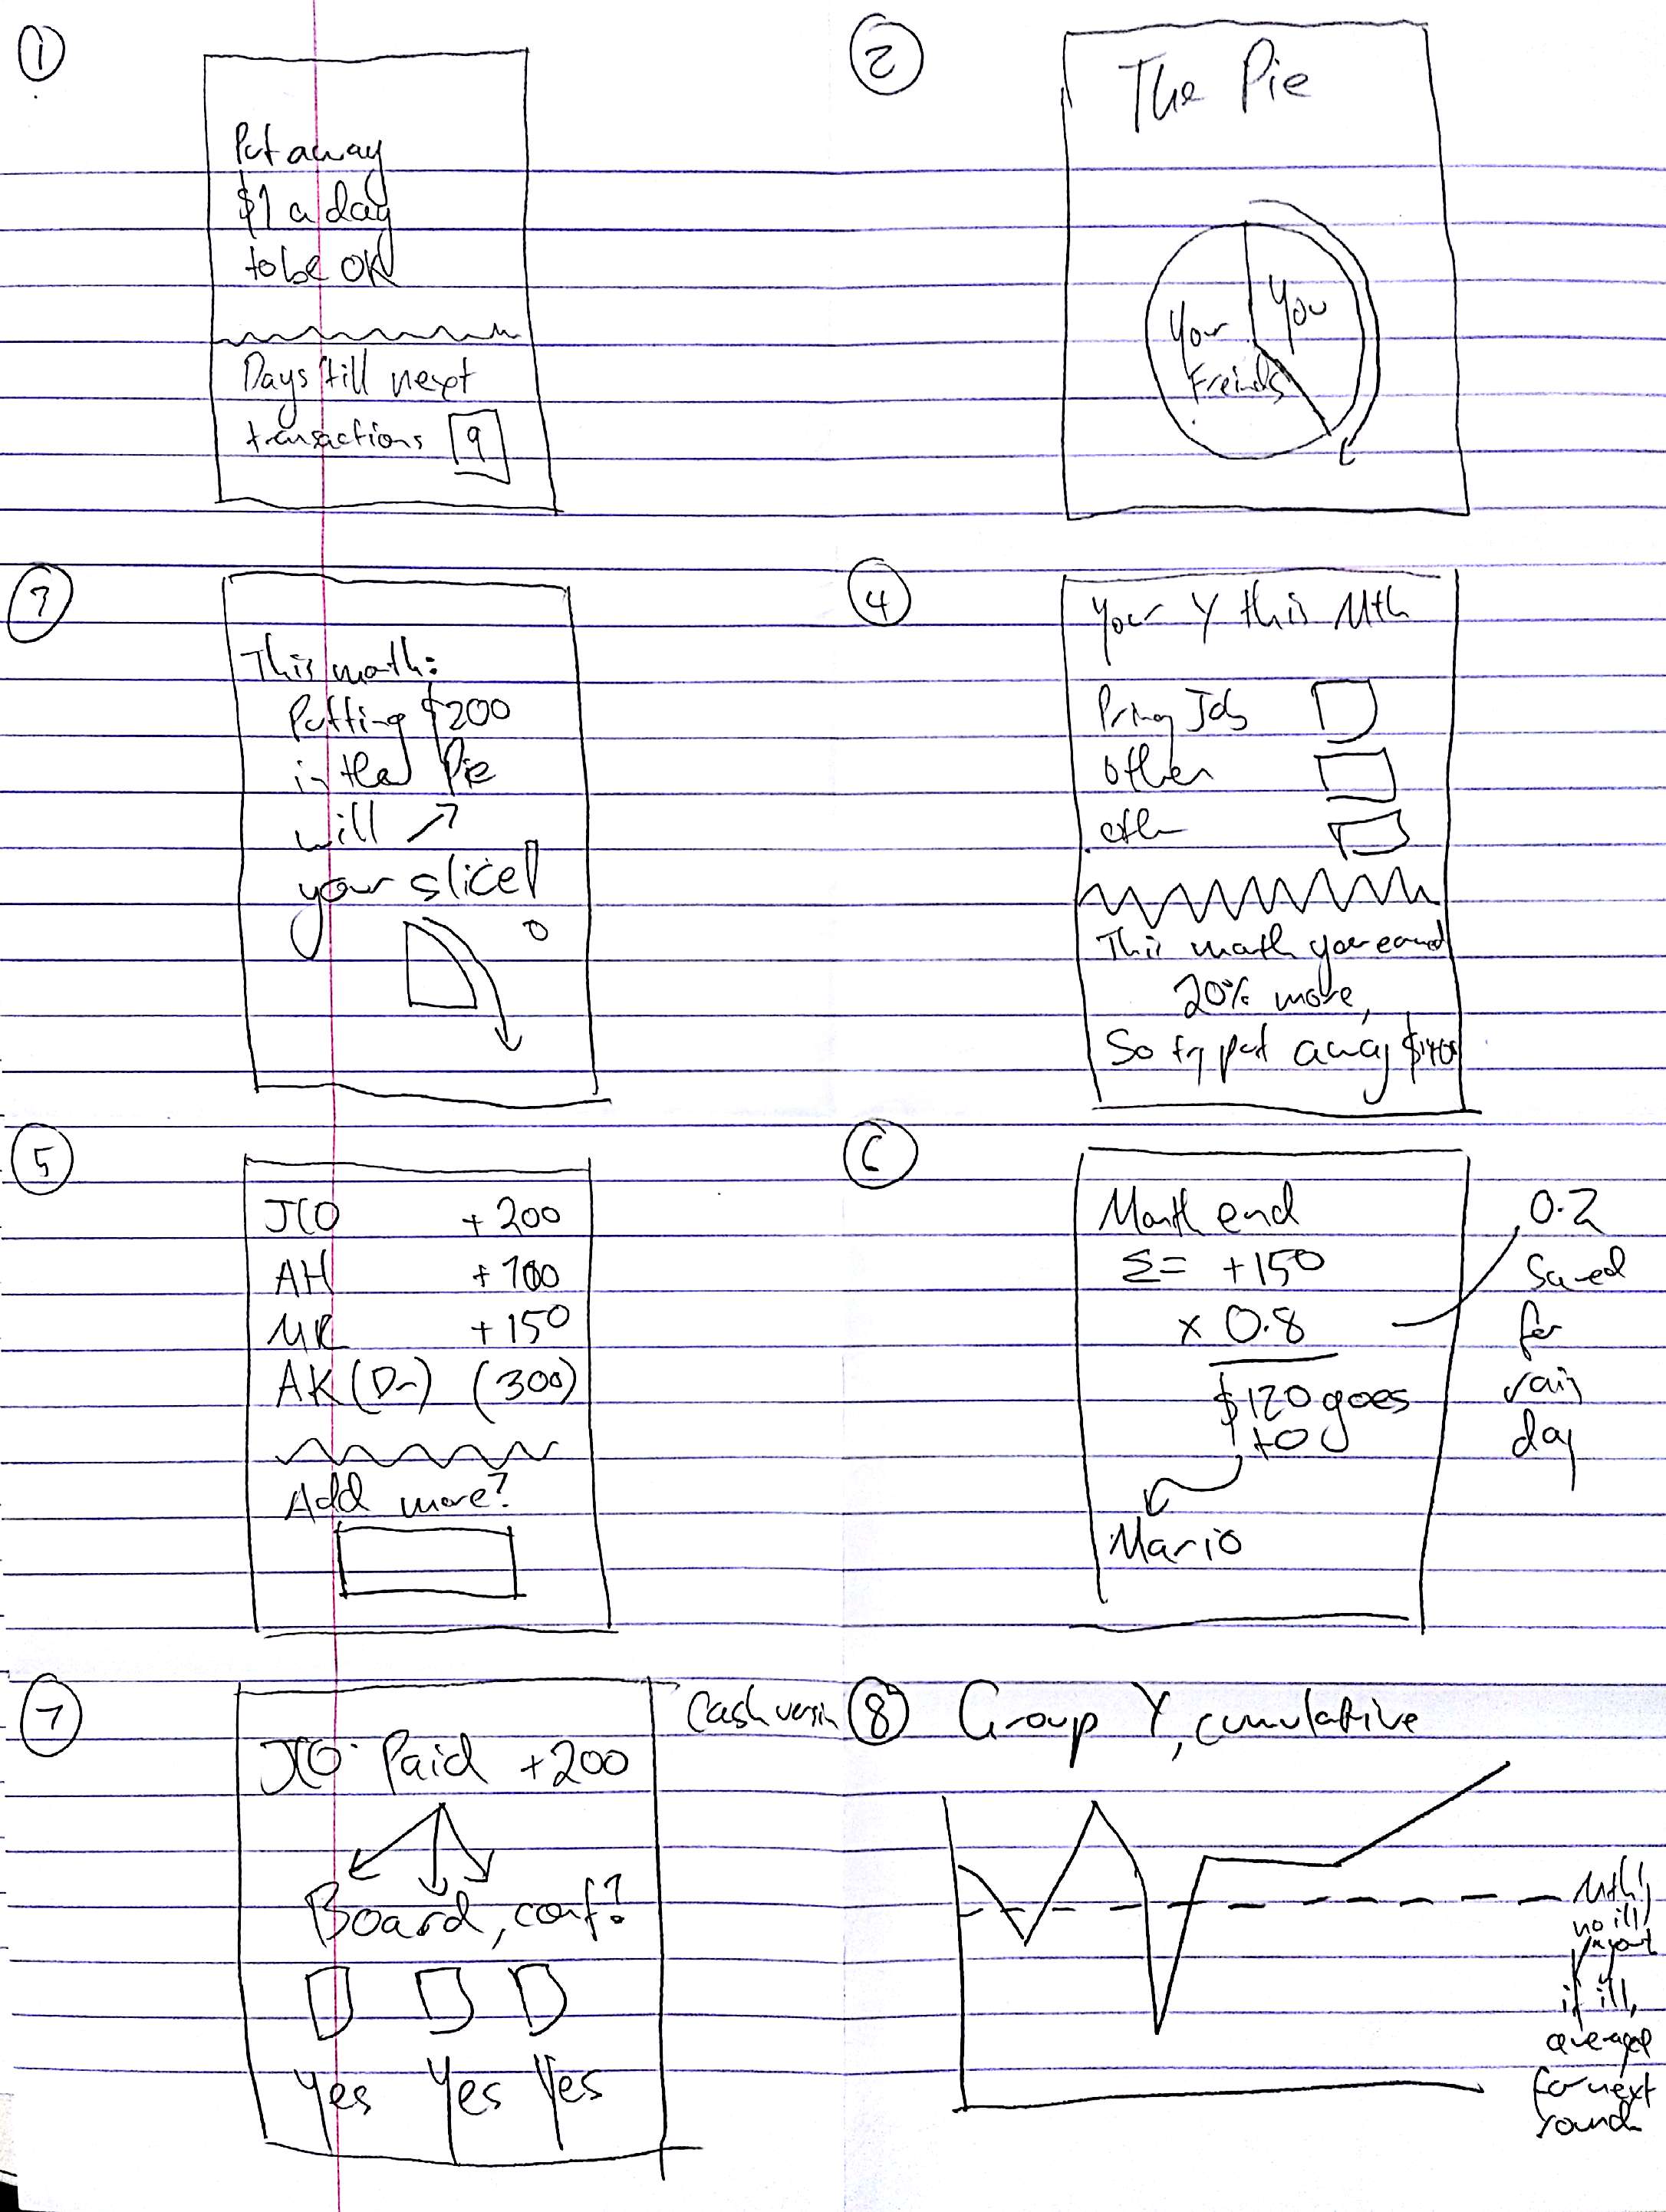 1
Put away
$1 a day
to be OK
Days till next
transactions 9
2
The Pie
Your
Freinds
You
3
This month:
Putting $200
in the Pie
will ↗
your slice!
4
Your Y this Mth
Job
other
other
This month you earned
20% more,
So try put away
5
JCO +200
AH +100
MR +150
AK (Dr) (300)
Add more?
6
Month end
Σ = +150
x 0.8
$120 goes
to
Mario
0.2
Saved
for
rainy
day
7
JCO Paid +200
Board, conf?
Yes Yes Yes
Cash version
8
Group Y, cumulative
Mthly
no ill,
if ill,
averaged
for next
round